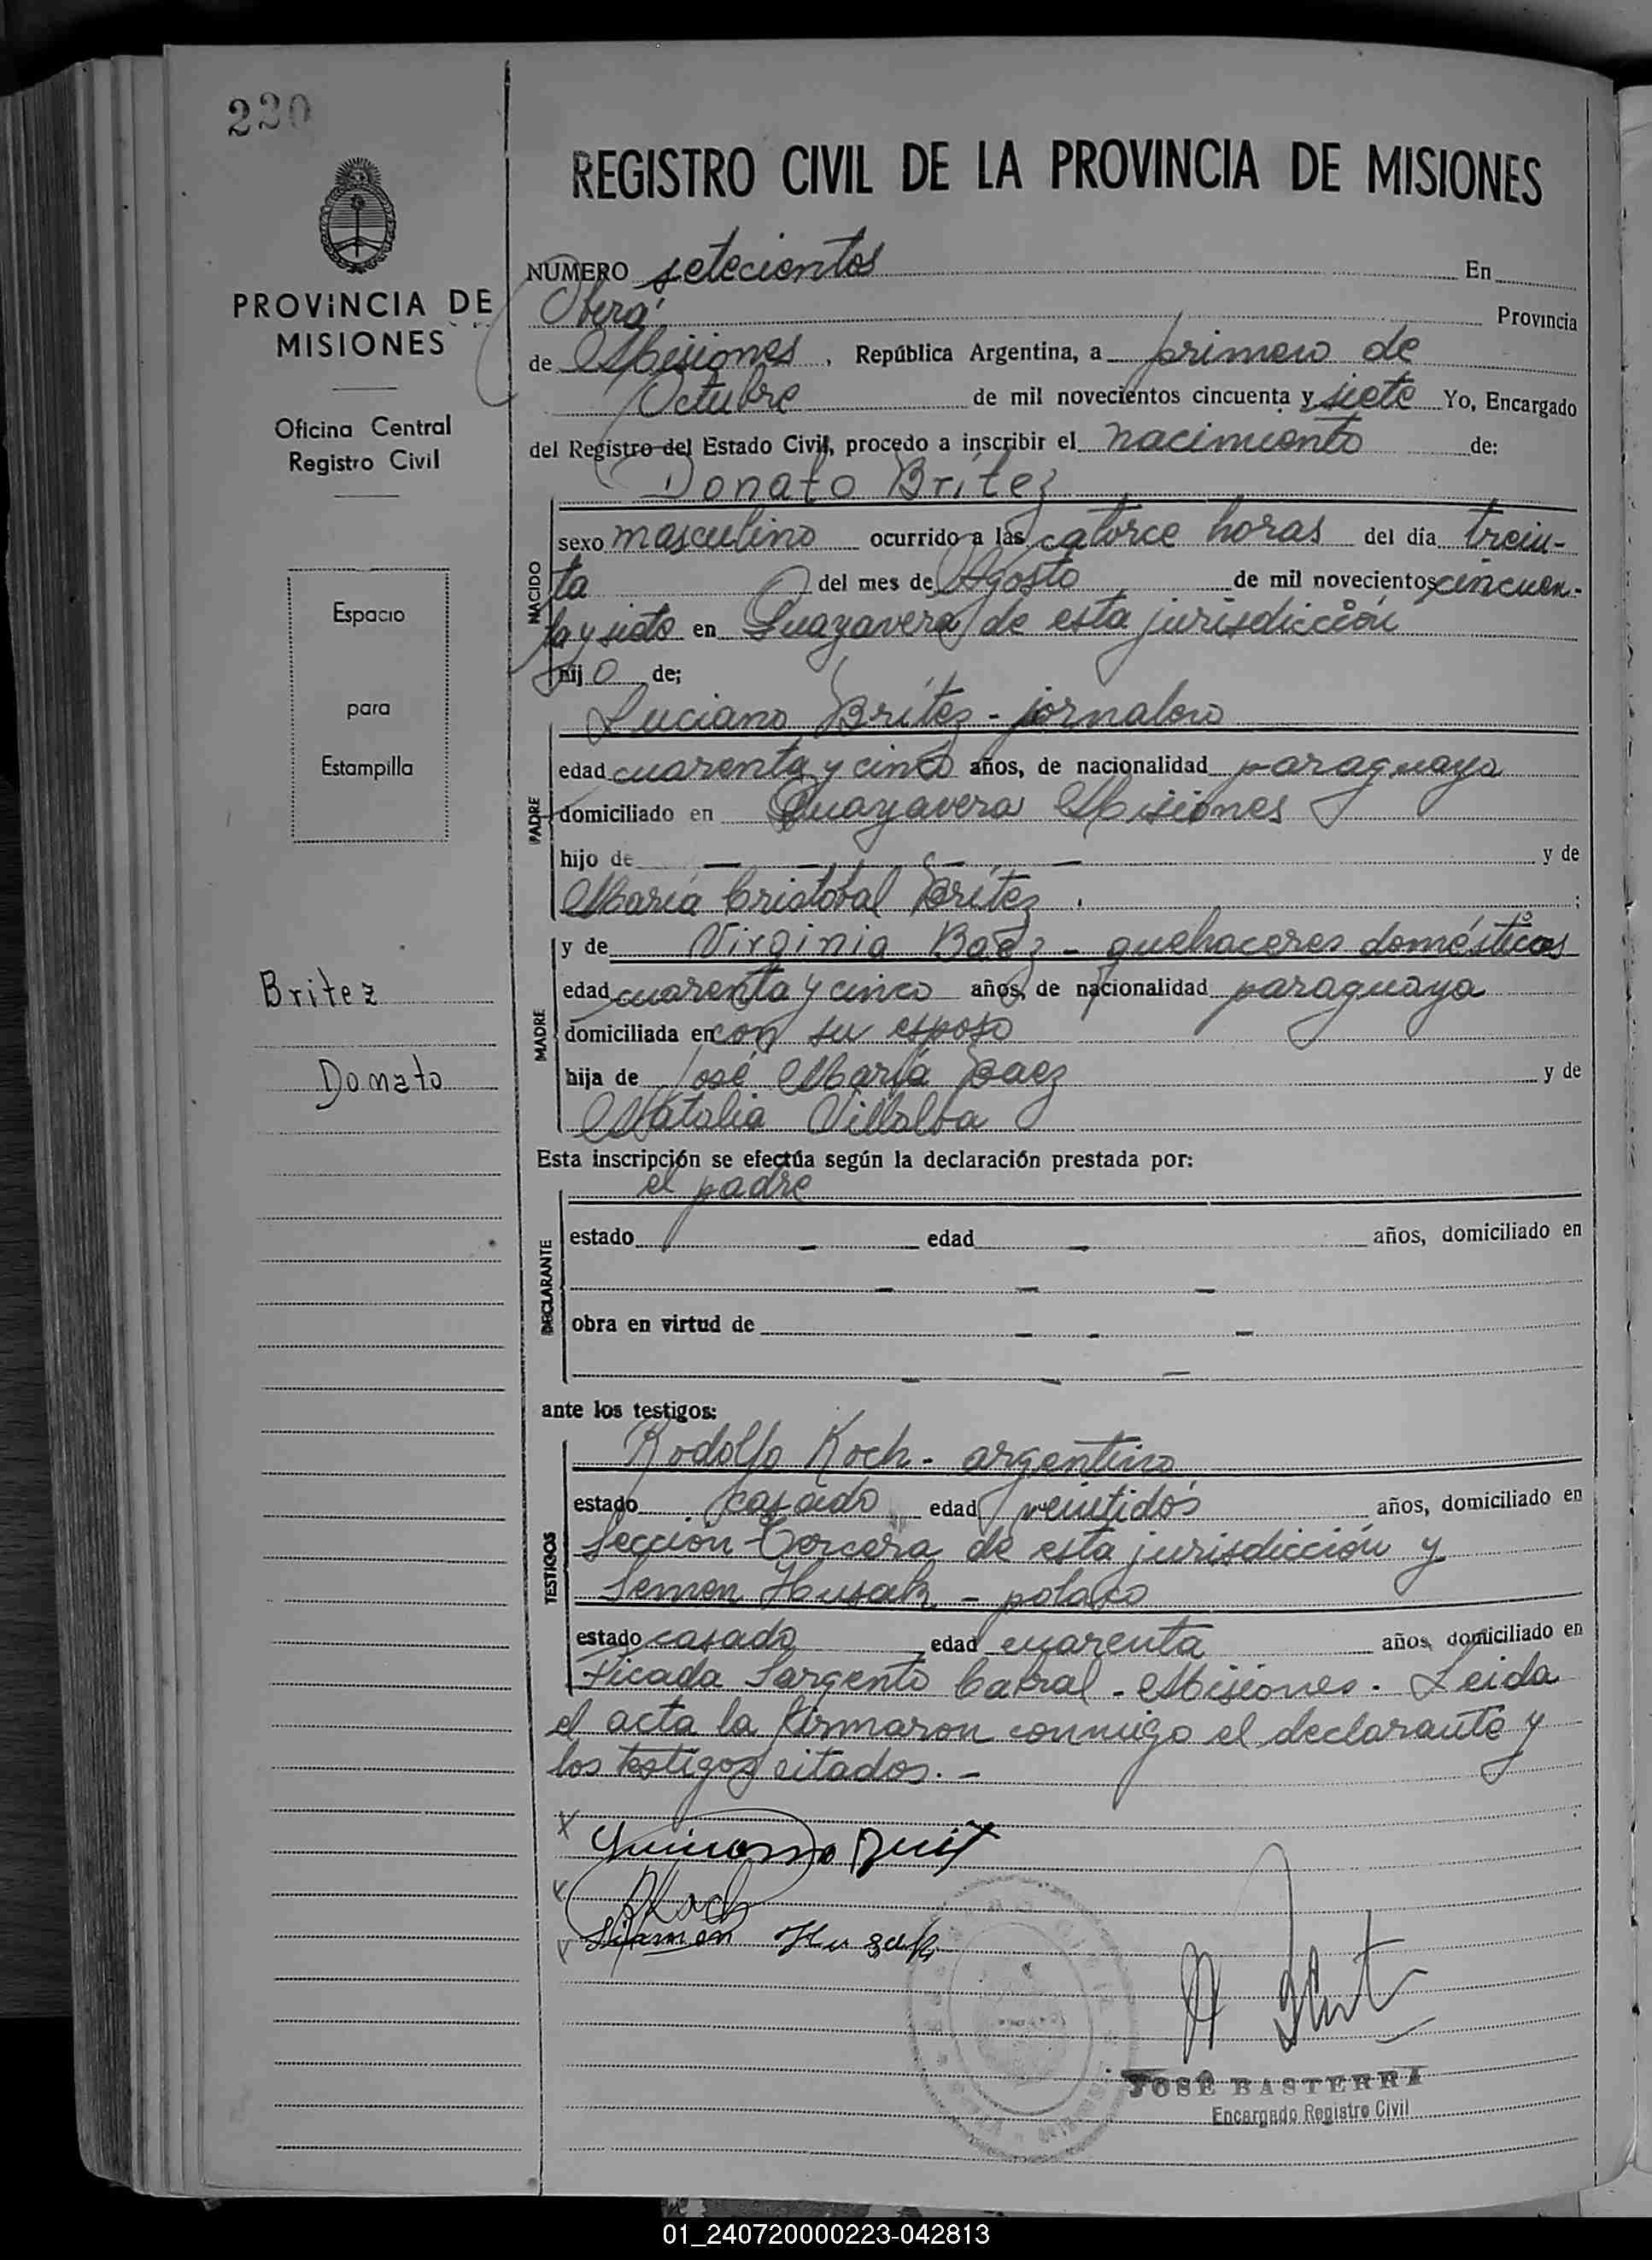 220
REGISTRO CIVIL DE LA PROVINCIA DE MISIONES
PROVINCIA DE
MISIONES
Oficina Central
Registro Civil
Espacio
para
Estampilla
Britez
Donato
NUMERO setecientos En
Oberá Provincia
de Misiones, República Argentina, a primero de
Octubre de mil novecientos cincuenta y siete Yo, Encargado
del Registro del Estado Civil, procedo a inscribir el nacimiento de:
Donato Britez
NACIDO
sexo masculino ocurrido a las catorce horas del día trein-
ta del mes de Agosto de mil novecientos cincuen-
ta y siete en Guayavera de esta jurisdicción
hijo de;
Luciano Britez - jornalero
PADRE
edad cuarenta y cinco años, de nacionalidad paraguaya
domiciliado en Guayavera Misiones
hijo de — — — — y de
María Cristobal Britez . ;
MADRE
y de Virginia Baez - quehaceres domésticos
edad cuarenta y cinco años, de nacionalidad paraguaya
domiciliada en con su esposo
hija de José María Baez y de
Natalia Villalba
Esta inscripción se efectúa según la declaración prestada por:
el padre
DECLARANTE
estado — edad — años, domiciliado en
— — —
obra en virtud de — — —
— — —
ante los testigos:
TESTIGOS
Rodolfo Koch - argentino
estado casado edad veintidós años, domiciliado en
Sección Tercera de esta jurisdicción y
Semen Husak - polaco
estado casado edad cuarenta años, domiciliado en
Picada Sargento Cabral - Misiones. Leida
el acta la firmaron conmigo el declarante y
los testigos citados. -
x
x RKoch
x Husak
JOSÉ BASTERRA
Encargado Registro Civil
01_240720000223-042813